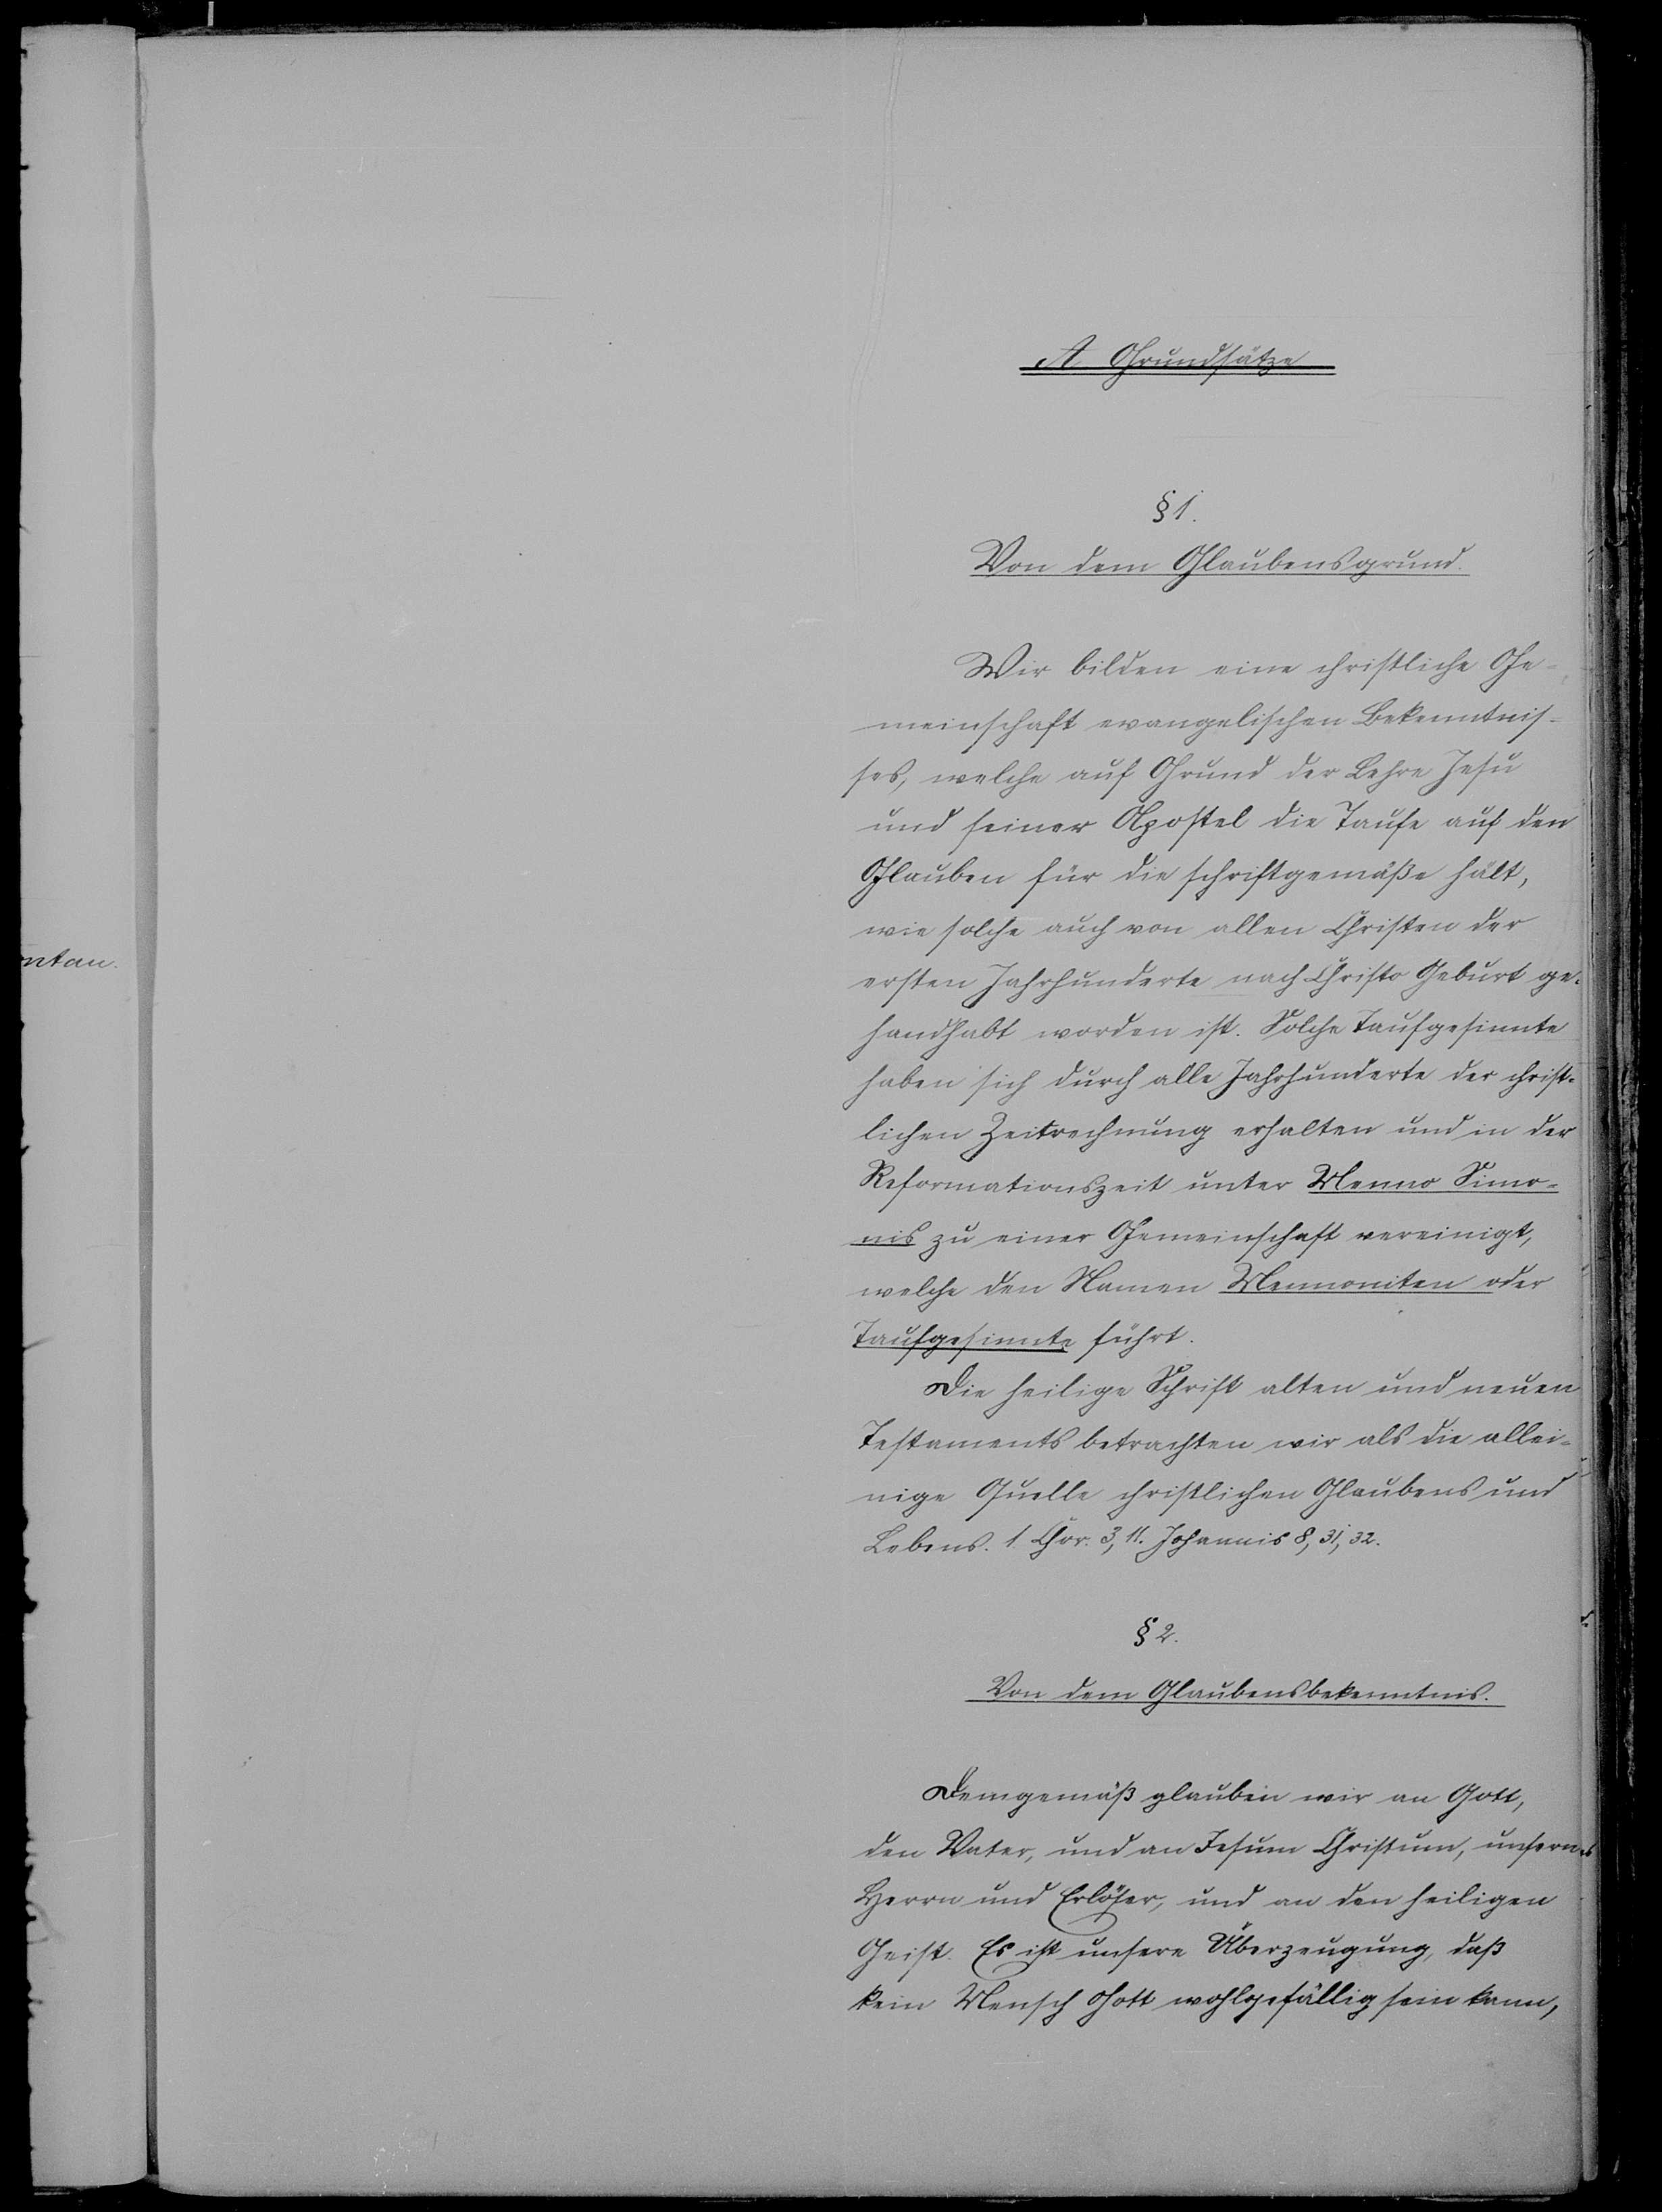 A Grundsätze
§ 1.
Von dem Glaubensgrund.
Wir bilden eine christliche Ge-
meinschaft evangelischen Bekenntnis-
ses, welche auf Grund der Lehre Jesu
und seiner Apostel die Taufe auf den
Glauben für die schriftgemäße hält,
wie solche auch von allen Christen der
ersten Jahrhunderte nach Christo Geburt ge-
handhabt worden ist. Solche Taufgesinnte
haben sich durch alle Jahrhunderte der christ-
lichen Zeitrechnung erhalten und in der
Reformationszeit unter Menno Simo-
nis zu einer Gemeinschaft vereinigt,
welche den Namen Mennoniten oder
Taufgesinnte führt.
Die heilige Schrift alten und neuen
Testaments betrachten wir als die allei-
nige Quelle christlichen Glaubens und
Lebens. 1. Chor. 3, 11. Johannis 8, 31, 32.
§ 2.
Von dem Glaubensbekenntnis.
Demgemäß glauben wir an Gott,
den Vater, und an Jesum Christum, unsern
Herrn und Erlöser, und an den heiligen
Geist. Es ist unsere Überzeugung, daß
kein Mensch Gott wohlgefällig sein kann,
ntau.